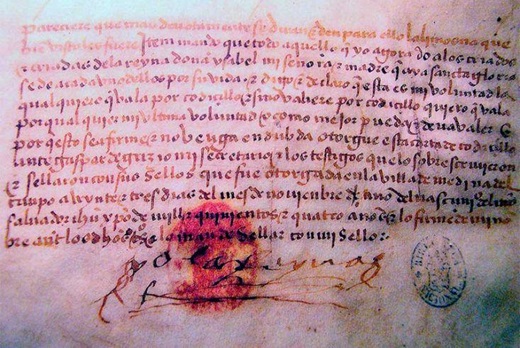 parecere que mas devotamente se diran e den para ello la limosna que
bie visto les fuere Item mando que todo aquello q yo agora do a los criados
e criadas de la reyna dona ysabel mi señora e madre q aya sancta gloria
se de a cada uno dellos por su vida e digo e declaro que esta es mi voluntad la
qual quiero q vala por codicillo e si no valiere por codicillo quiero q vala
por qualquier mi ultima voluntad e como mejor puede e deva valer E
por q esto sea firme e no venga en dubda otorgue esta carta de codicillo
ante gaspar de grizio mi secretario e los testigos que lo sobrescrivieron
e sellaron con sus sellos que fue otorgada en la villa de medina del
campo a veynte e tres dias del mes de noviembre año del nascimi del nro
salvador ihu xpo de mill e quinientos e quatro años e lo firme de mi no
bre ante los dhos tos e lo mande sellar con mi sello
yo la reyna